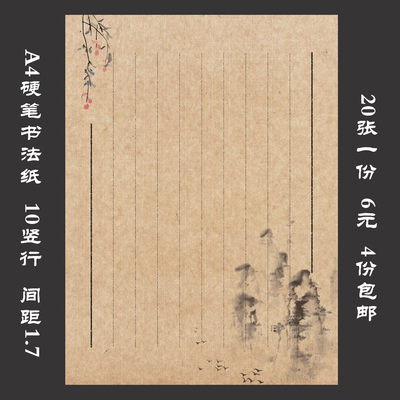 A4硬笔书法纸 10竖行 间距1.7
20张一份 6元 4份包邮